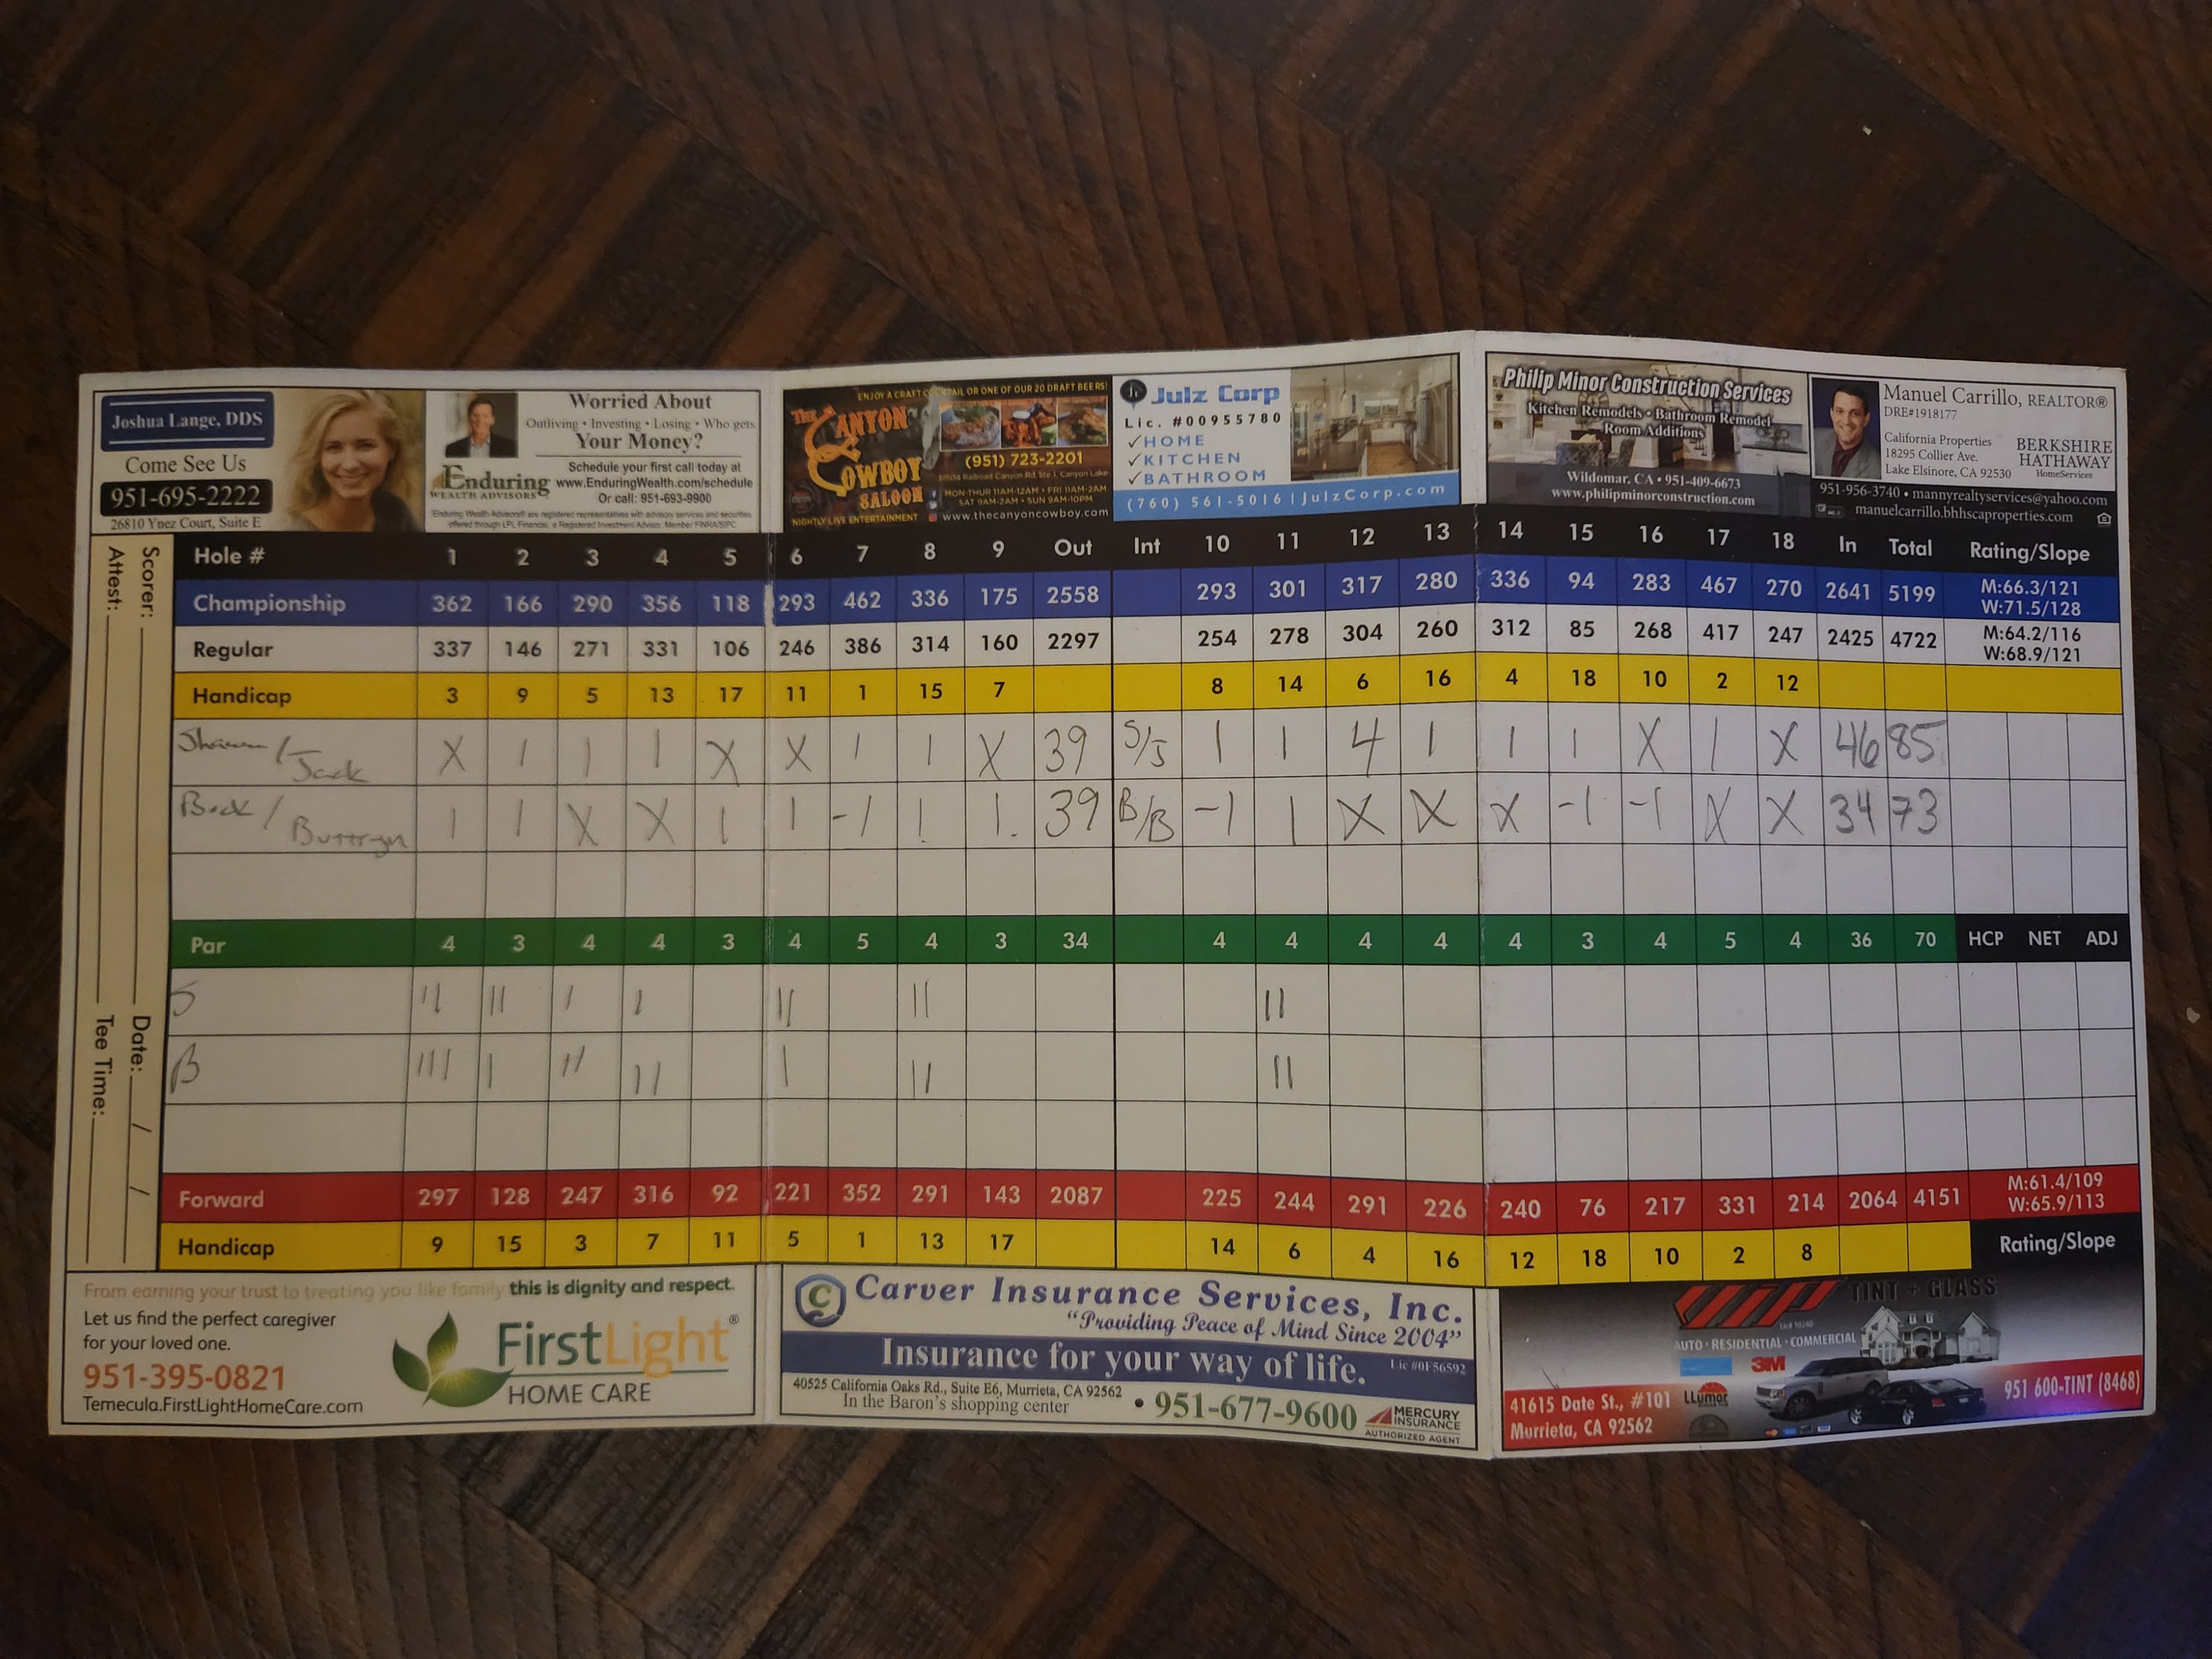 Joshua Lange, DDS
Come See Us
951-695-2222
26810 Ynez Court, Suite E
Worried About
Outliving • Investing • Losing • Who gets
Your Money?
Enduring
WEALTH ADVISORS
Schedule your first call today at
www.EnduringWealth.com/schedule
Or call: 951-693-9900
Enduring Wealth Advisors® are registered representatives with advisory services and securities
offered through LPL Financial, a Registered Investment Advisor, Member FINRA/SIPC
ENJOY A CRAFT COCKTAIL OR ONE OF OUR 20 DRAFT BEERS!
THE CANYON COWBOY SALOON
(951) 723-2201
31504 Railroad Canyon Rd. Ste 1, Canyon Lake
MON-THUR 11AM-12AM • FRI 11AM-2AM
SAT 9AM-2AM • SUN 9AM-10PM
NIGHTLY LIVE ENTERTAINMENT
www.thecanyoncowboy.com
Julz Corp
Lic. #00955780
✓HOME
✓KITCHEN
✓BATHROOM
(760) 561-5016 | JulzCorp.com
Philip Minor Construction Services
Kitchen Remodels • Bathroom Remodel
Room Additions
Wildomar, CA • 951-409-6673
www.philipminorconstruction.com
Manuel Carrillo, REALTOR®
DRE#1918177
California Properties
18295 Collier Ave.
Lake Elsinore, CA 92530
BERKSHIRE
HATHAWAY
HomeServices
951-956-3740 • mannyrealtyservices@yahoo.com
manuelcarrillo.bhhscaproperties.com
Scorer: Date: / /
Attest: Tee Time:
Hole # 1 2 3 4 5 6 7 8 9 Out Int 10 11 12 13 14 15 16 17 18 In Total Rating/Slope
Championship 362 166 290 356 118 293 462 336 175 2558 293 301 317 280 336 94 283 467 270 2641 5199 M:66.3/121
W:71.5/128
Regular 337 146 271 331 106 246 386 314 160 2297 254 278 304 260 312 85 268 417 247 2425 4722 M:64.2/116
W:68.9/121
Handicap 3 9 5 13 17 11 1 15 7 8 14 6 16 4 18 10 2 12
Shawn / Jack X 1 1 1 X X 1 1 X 39 S/J 1 1 4 1 1 1 X 1 X 46 85
/ 1 1 X X 1 1 -1 1 1. 39 B/B -1 1 X X X -1 -1 X X 34 73
Par 4 3 4 4 3 4 5 4 3 34 4 4 4 4 4 3 4 5 4 36 70 HCP NET ADJ
S || || | | || || ||
B ||| | || || | || ||
Forward 297 128 247 316 92 221 352 291 143 2087 225 244 291 226 240 76 217 331 214 2064 4151 M:61.4/109
W:65.9/113
Handicap 9 15 3 7 11 5 1 13 17 14 6 4 16 12 18 10 2 8 Rating/Slope
From earning your trust to treating you like family this is dignity and respect.
Let us find the perfect caregiver
for your loved one.
951-395-0821
Temecula.FirstLightHomeCare.com
FirstLight®
HOME CARE
Carver Insurance Services, Inc.
"Providing Peace of Mind Since 2004"
Insurance for your way of life.
Lic #0F56592
40525 California Oaks Rd., Suite E6, Murrieta, CA 92562
In the Baron's shopping center
• 951-677-9600
MERCURY
INSURANCE
AUTHORIZED AGENT
VIP TINT + GLASS
AUTO • RESIDENTIAL • COMMERCIAL
3M
LLumar
41615 Date St., #101
Murrieta, CA 92562
951 600-TINT (8468)